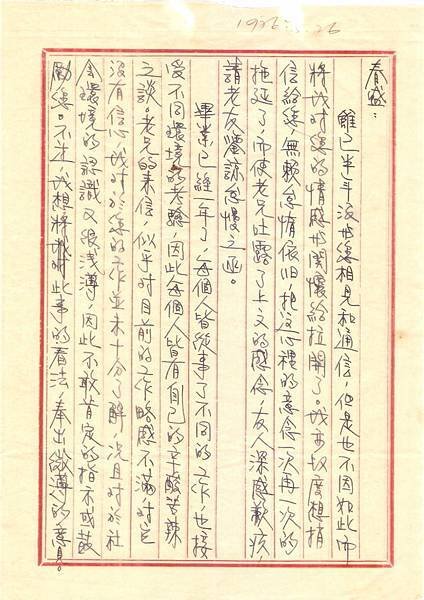 1976.5.26
春盛:
雖已半年沒与您相見和通信,但是也不因如此而
將我对您的情感与関懷給拉開了。我亦极度想捎
信給您,無賴怠惰依旧,把這心裡的意念一次再一次的
拖延了,而使老兄吐露了上文的感念,友人深感歉疚,
請老友鑒諒怠慢之函。
畢業已經一年了,每個人皆從事了不同的工作,也接
受不同環境的考驗,因此每個人皆有自己的辛酸苦辣
之談。老兄的來信,似乎对目前的工作略感不滿,对它
沒有信心,我对於您的工作並未十分了解,況且对於社
会環境的認識又很浅薄,因此不敢肯定的指示或鼓
勵您。不才,我想將我对此事的看法,奉出微薄的意見。